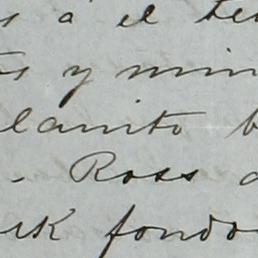 s á el te
s y min
lanito b
. Ross a
ck fondo